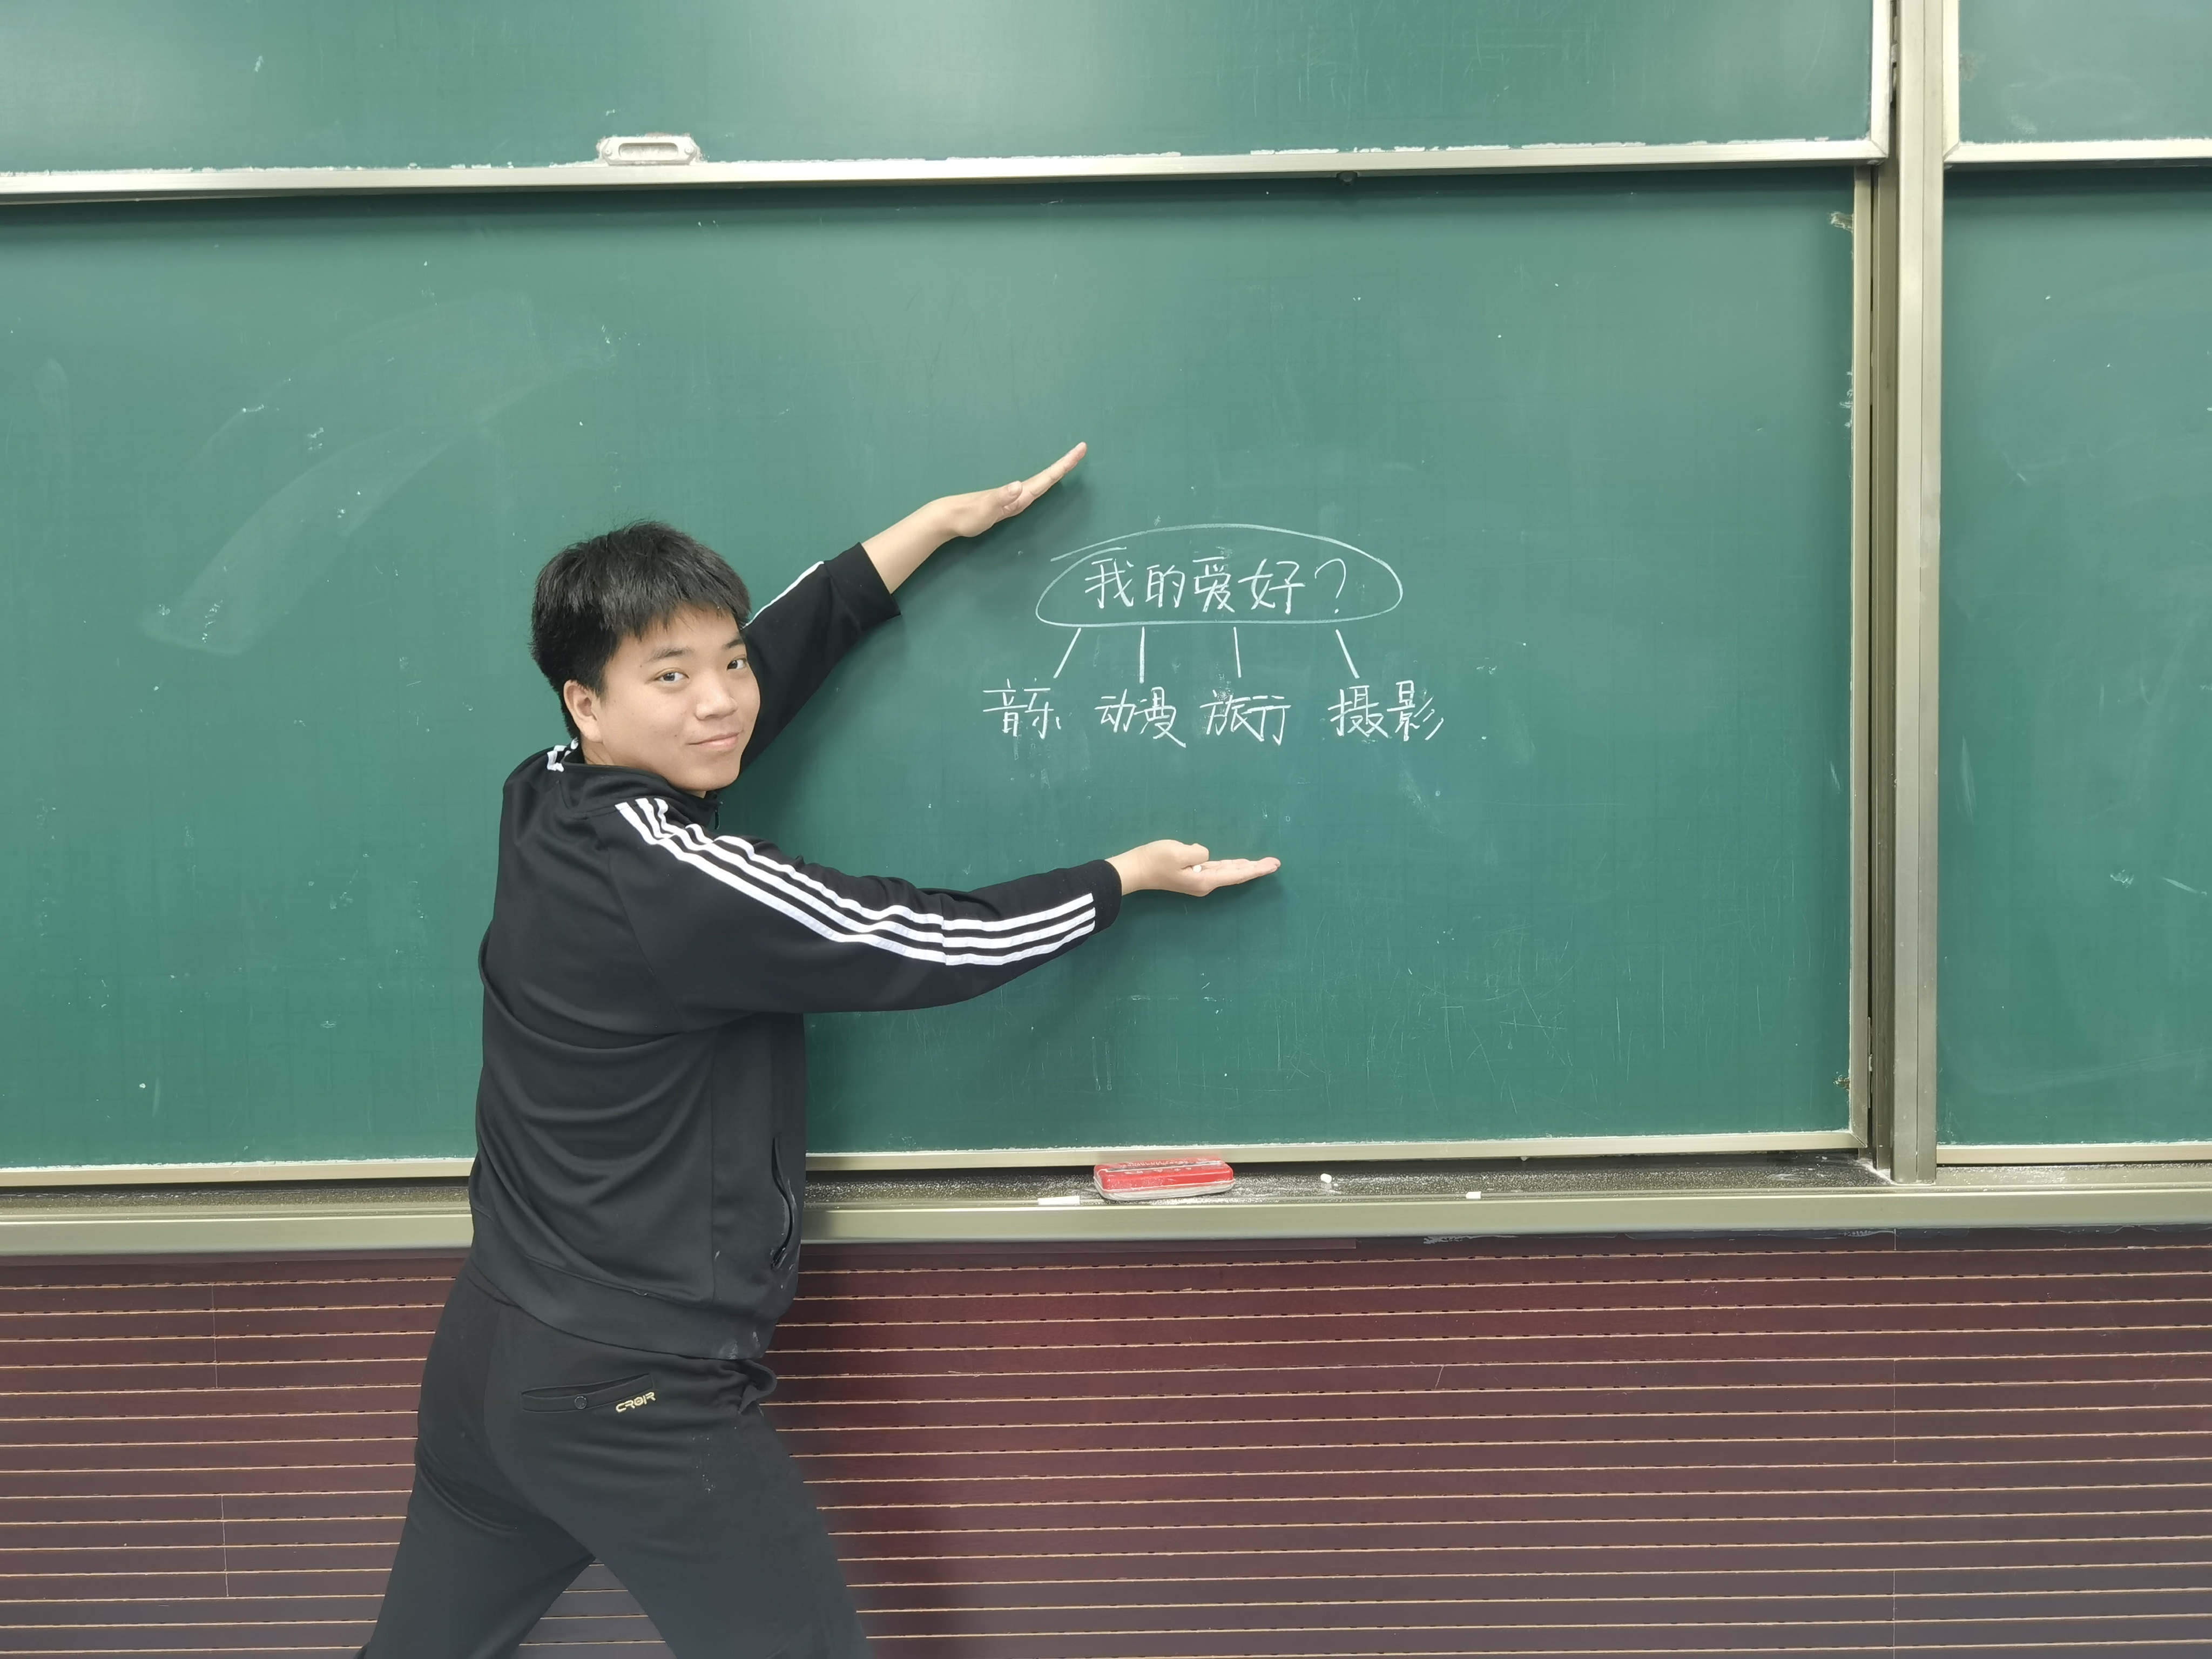 我的爱好?
音乐 动漫 旅行 摄影
CROIR